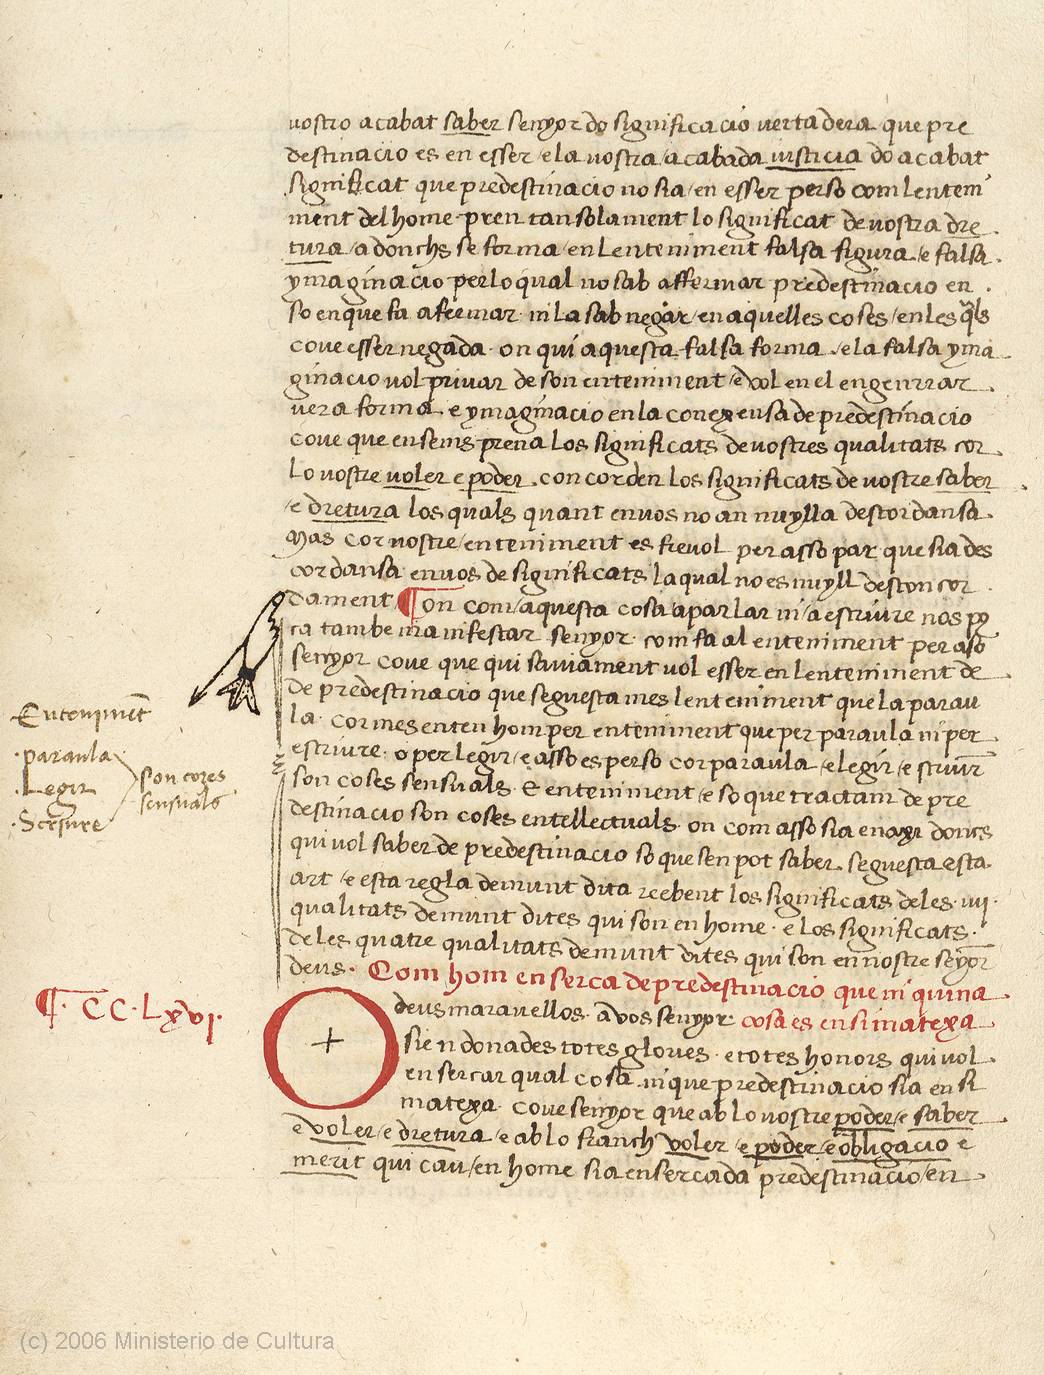 vostro acabat saber senyor do significacio vertadera que pre
destinacio es en esser e la vostra acabada iusticia do acabat
significat que predestinacio no sia en esser perso com lenteni
ment del home pren tan solament lo significat de vostra dre
tura adonchs se forma en lenteniment falsa figura e falsa
ymaginacio per lo qual no sab affermar predestinacio en
so en que fa afermar ni la sab negar en aquelles coses en les qls
cove esser negada on qui aquesta falsa forma e la falsa yma
ginacio vol privar de son enteniment e vol en el engenrrar
vera forma e ymaginacio en la conexensa de predestinacio
cove que ensems prena los significats de vostres qualitats cor
lo vostre voler e poder concorden los significats de vostre saber
e dretura los quals quant en vos no an nuylla descordansa
Mas cor nostre enteniment es frevol per asso par que sia des
cordansa en vos de significats la qual no es nuyll desconcor
dament ¶ on com aquesta cosa a parlar ni a escriure nos pp
ca tambe manifestar senyor com fa al enteniment per aso
senyor cove que qui saviament vol esser en lenteniment de
de predestinacio que seguesca mes lenteniment que la parau
la. cor mes enten hom per enteniment que per paraula ni per
escriure. o per legir e asso es perso cor paraula e legir e scriure
son coses sensuals. E enteniment e so que tractam de pre
destinacio son coses entellectuals. on com asso sia enaxi doncs
qui vol saber de predestinacio so que sen pot saber seguesca esta
art e esta regla demunt dita reebent los significats de les .iiij.
qualitats demunt dites qui son en home. e los significats.
de les quatre qualitats demunt dites qui son en nostre senyor
deus. Com hom enserca de predestinacio que ni quina
cosa es en si matexa
¶. CC.Lxvi.
O deus maravellos. a vos senyor
sien donades totes glories. e totes honors qui vol
ensercar qual cosa ni que predestinacio sia en si
matexa. cove senyor que ab lo vostre poder e saber
e voler e dretura e ab lo franch voler e poder e obligacio e
merit qui cau en home sia ensercada predestinacio en
Enteniment
.paraula.
.Legir
.Scriure
son cozes
sensuals
(c) 2006 Ministerio de Cultura